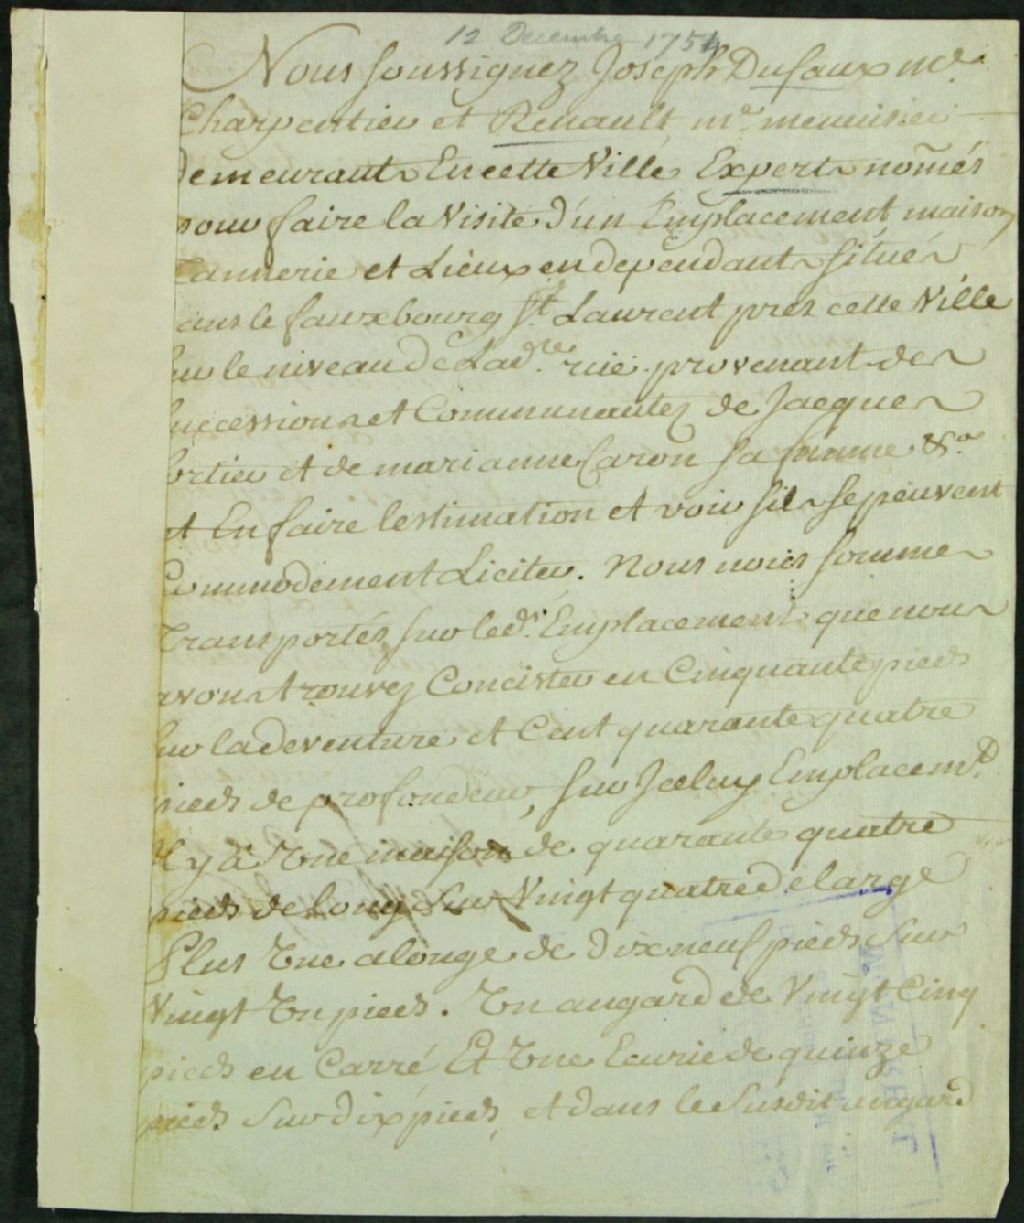 12 Decembre 1751
Nous soussignez Joseph Dufaux me.
Charpentier et Renault me. menuisier
Demeurants En cette Ville Experts nom̃és
pour faire la Visite d'un Emplacement maison
Tannerie et Lieux en dependants situés
ans le fauxbourg St. Laurent pres cette Ville
sur le niveau de Ladte. rüe provenant des
uccessions et Communautez de Jacques
ortier et de marianne Caron sa femme &a.
et En faire lestimation et voir sils se peuvent
Commodement Liciter. Nous nous sommes
Transportés sur ledt. Emplacement que nous
avons trouvez Concister en Cinquante pieds
sur la deventure et Cent quarante quatre
pieds de profondeur, sur Jceluy Emplacemt.
Il y à Une maison de quarante quatre
pieds de Long sur Vingt quatre de large
Plus Une alonge de dix neuf pieds sur
Vingt Un pieds. Un angard de Vingt Cinq
pieds en Carré Et Une Ecurie de quinze
pieds sur dix pieds, et dans le susdit angard